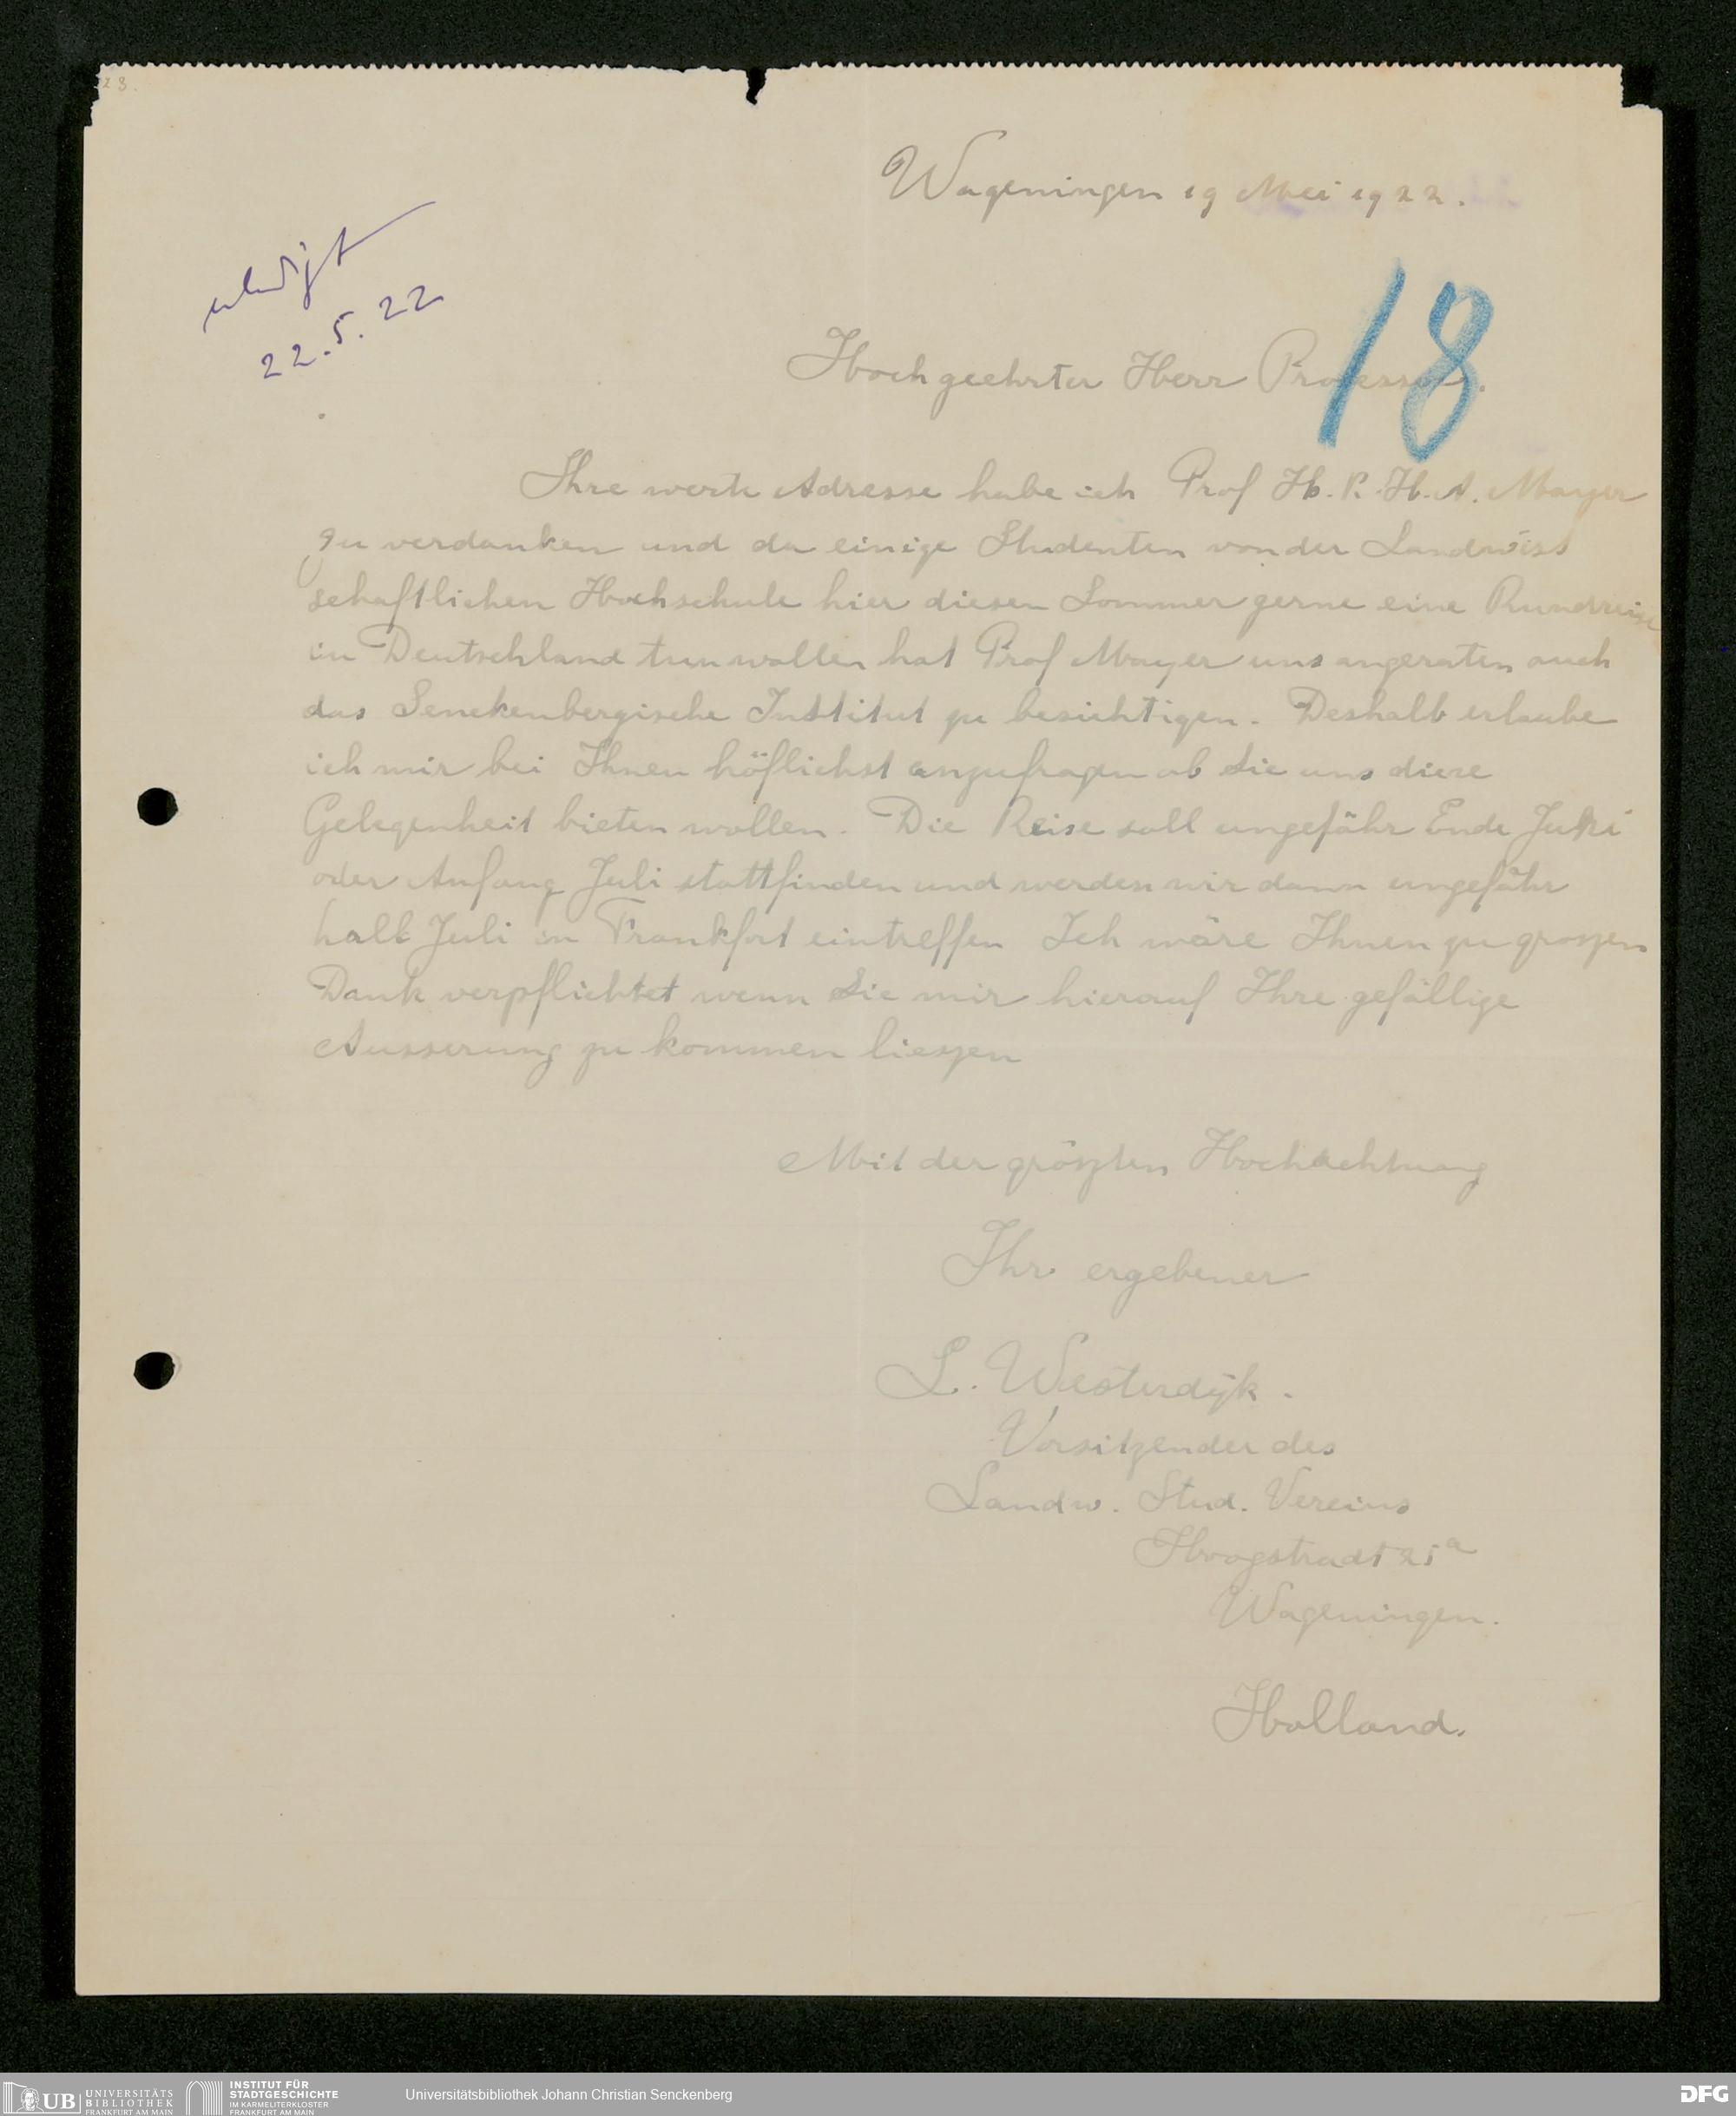 Wageningen 19 Mei 1922.
erledigt
22.5.22
18
Hochgeehrter Herr Professor.
Ihre werte Adresse habe ich Prof H. R. H. A. Mayer
zu verdanken und da einige Studenten von der Landwirt
schaftlichen Hochschule hier diesen Sommer gerne eine Rundreise
in Deutschland tun wollen hat Prof Mayer uns angeraten auch
das Senckenbergische Institut zu besichtigen. Deshalb erlaube
ich mir bei Ihnen höflichst anzufragen ob Sie uns diese
Gelegenheit bieten wollen. Die Reise soll ungefähr Ende Juni
oder Anfang Juli stattfinden und werden wir dann ungefähr
halb Juli in Frankfort eintreffen Ich wäre Ihnen zu groszen
Dank verpflichtet wenn Sie mir hierauf Ihre gefällige
Äusserung zu kommen lieszen
Mit der gröszten Hochachtung
Ihr ergebener
L. Westerdijk.
Vorsitzender des
Landw. Stud. Vereins
Hoogstraat 21a
Wageningen.
Holland.
UB UNIVERSITÄTS
BIBLIOTHEK
FRANKFURT AM MAIN
INSTITUT FÜR
STADTGESCHICHTE
IM KARMELITERKLOSTER
FRANKFURT AM MAIN
Universitätsbibliothek Johann Christian Senckenberg
DFG